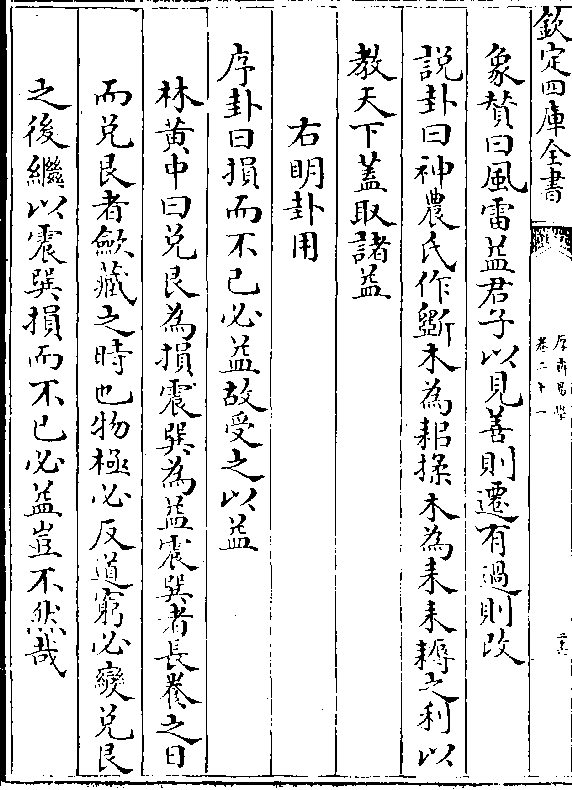 欽定四庫全書
厚齋易學
卷二十一
象賛曰風雷益君子以見善則遷有過則改
説卦曰神農氏作斵木為耜揉木為耒耒耨之利以
教天下蓋取諸益
右明卦用
序卦曰損而不已必益故受之以益
林黄中曰兑艮為損震巽為益震巽者長養之日
而兑艮者歛藏之時也物極必反道窮必變兑艮
之後繼以震巽損而不已必益豈不然哉